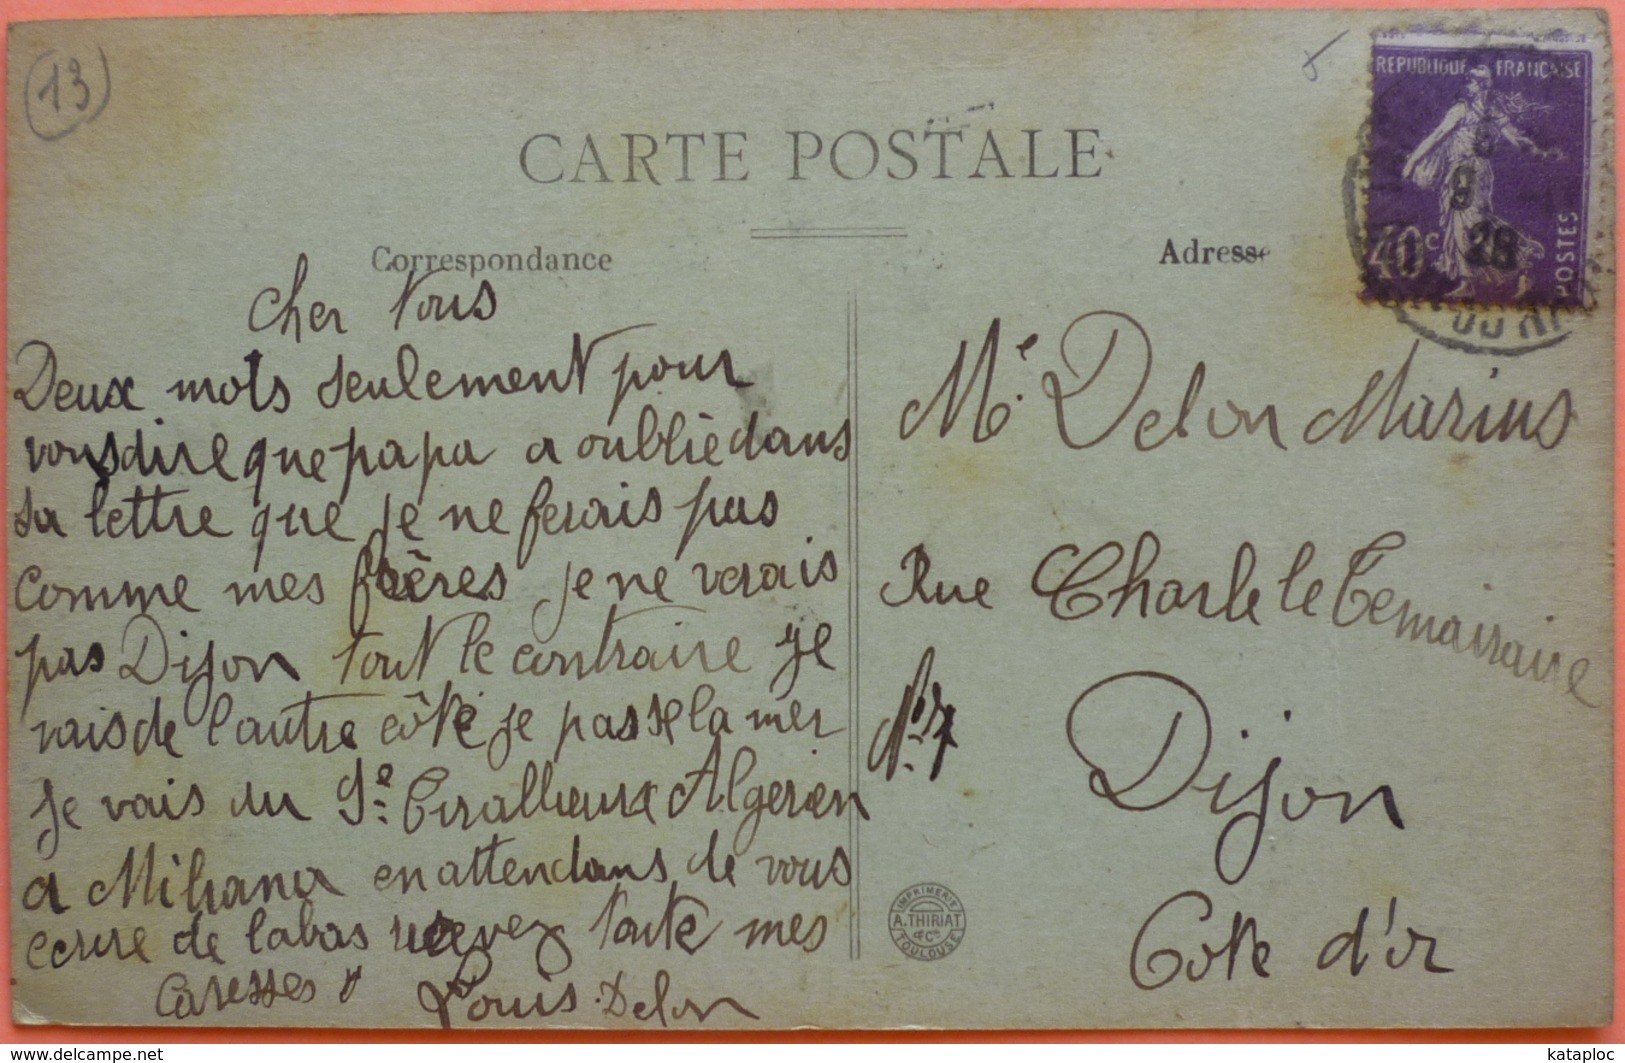 13
CARTE POSTALE
REPUBLIQUE FRANÇAISE
40c
POSTES
9
28
Correspondance
Adresse
Cher Tous
Deux mots seulement pour
vous dire que papa a oubliè dans
sa lettre que je ne ferais pas
comme mes frères je ne verais
pas Dijon tout le contraire je
vais de l'autre côté je passe la mer
Je vais du 9e Tirallieurs Algerien
a Miliana en attendans de vous
ecrire de labas recevez toute mes
Caresses
Louis Delon
Me Delon Marius
Rue Charle le Temairaire
No 37
Dijon
Cote d'or
IMPRIMERIE
A. THIRIAT
& Cie
TOULOUSE
www.delcampe.net
kataploc